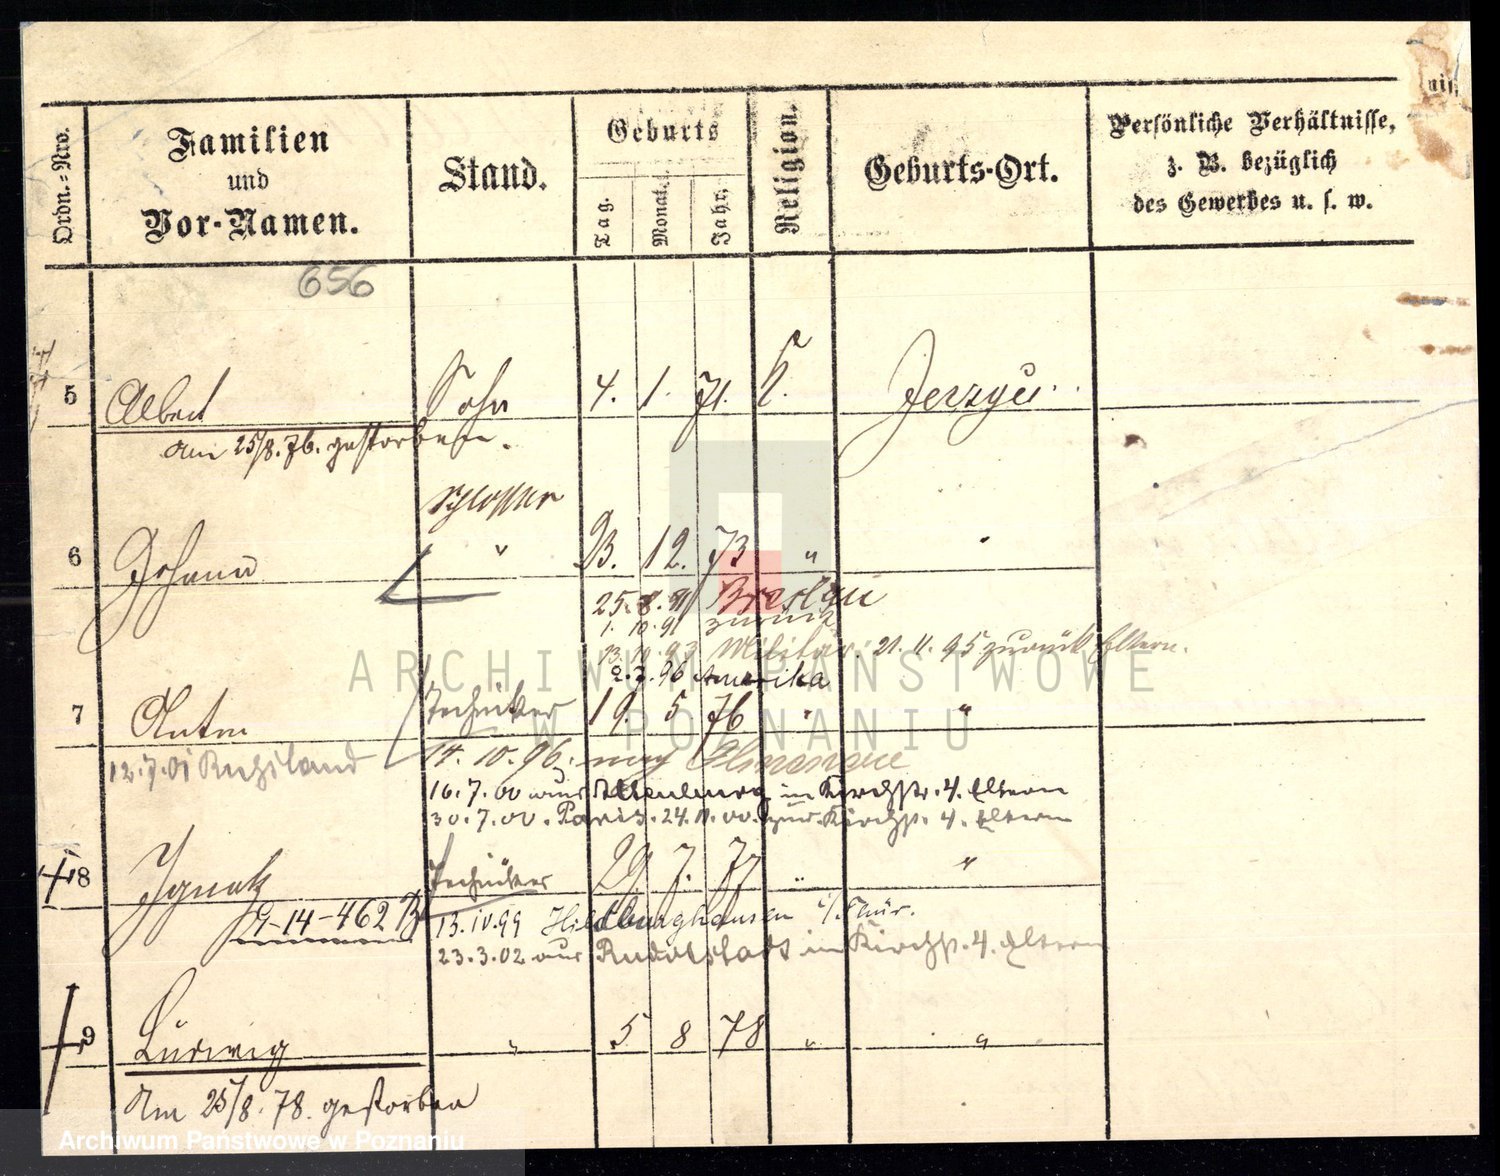 Ordn.-Nro.
Familien
und
Vor-Namen.
Stand.
Geburts
Tag.
Monat.
Jahr.
Religion.
Geburts-Ort.
Persönliche Verhältnisse,
z. B. bezüglich
des Gewerbes u. s. w.
656
5 Albert Sohn 4. 1. 71. k. Jerzyce
Am 25/8. 76. gestorben.
Schlosser
6 Johann " 23. 12. 73 "
25. 8. 91 Breslau
1. 10. 91 zurück
13. 10. 93 Militär. 21. 11. 95 zurück Eltern.
2. 7. 96 Amerika
7 Anton Techniker 19. 5 76 " "
12.7.01 Rußland
14. 10. 96. nach Ilmenau
16.7.00 aus Altenburg in Kirchstr. 4. Eltern
30.7.00. Paris. 24.11.00. zur. Kirchstr. 4. Eltern
8 Ignatz Techniker 29 7. 77 " "
9-14-462 B
13.10.99 Hildburghausen i/Thür.
23.3.02 aus Rudolstadt in Kirchstr. 4. Eltern
9 Ludwig " 5 8 78 " "
Am 25/8. 78. gestorben
ARCHIWUM PAŃSTWOWE
W POZNANIU
Archiwum Państwowe w Poznaniu